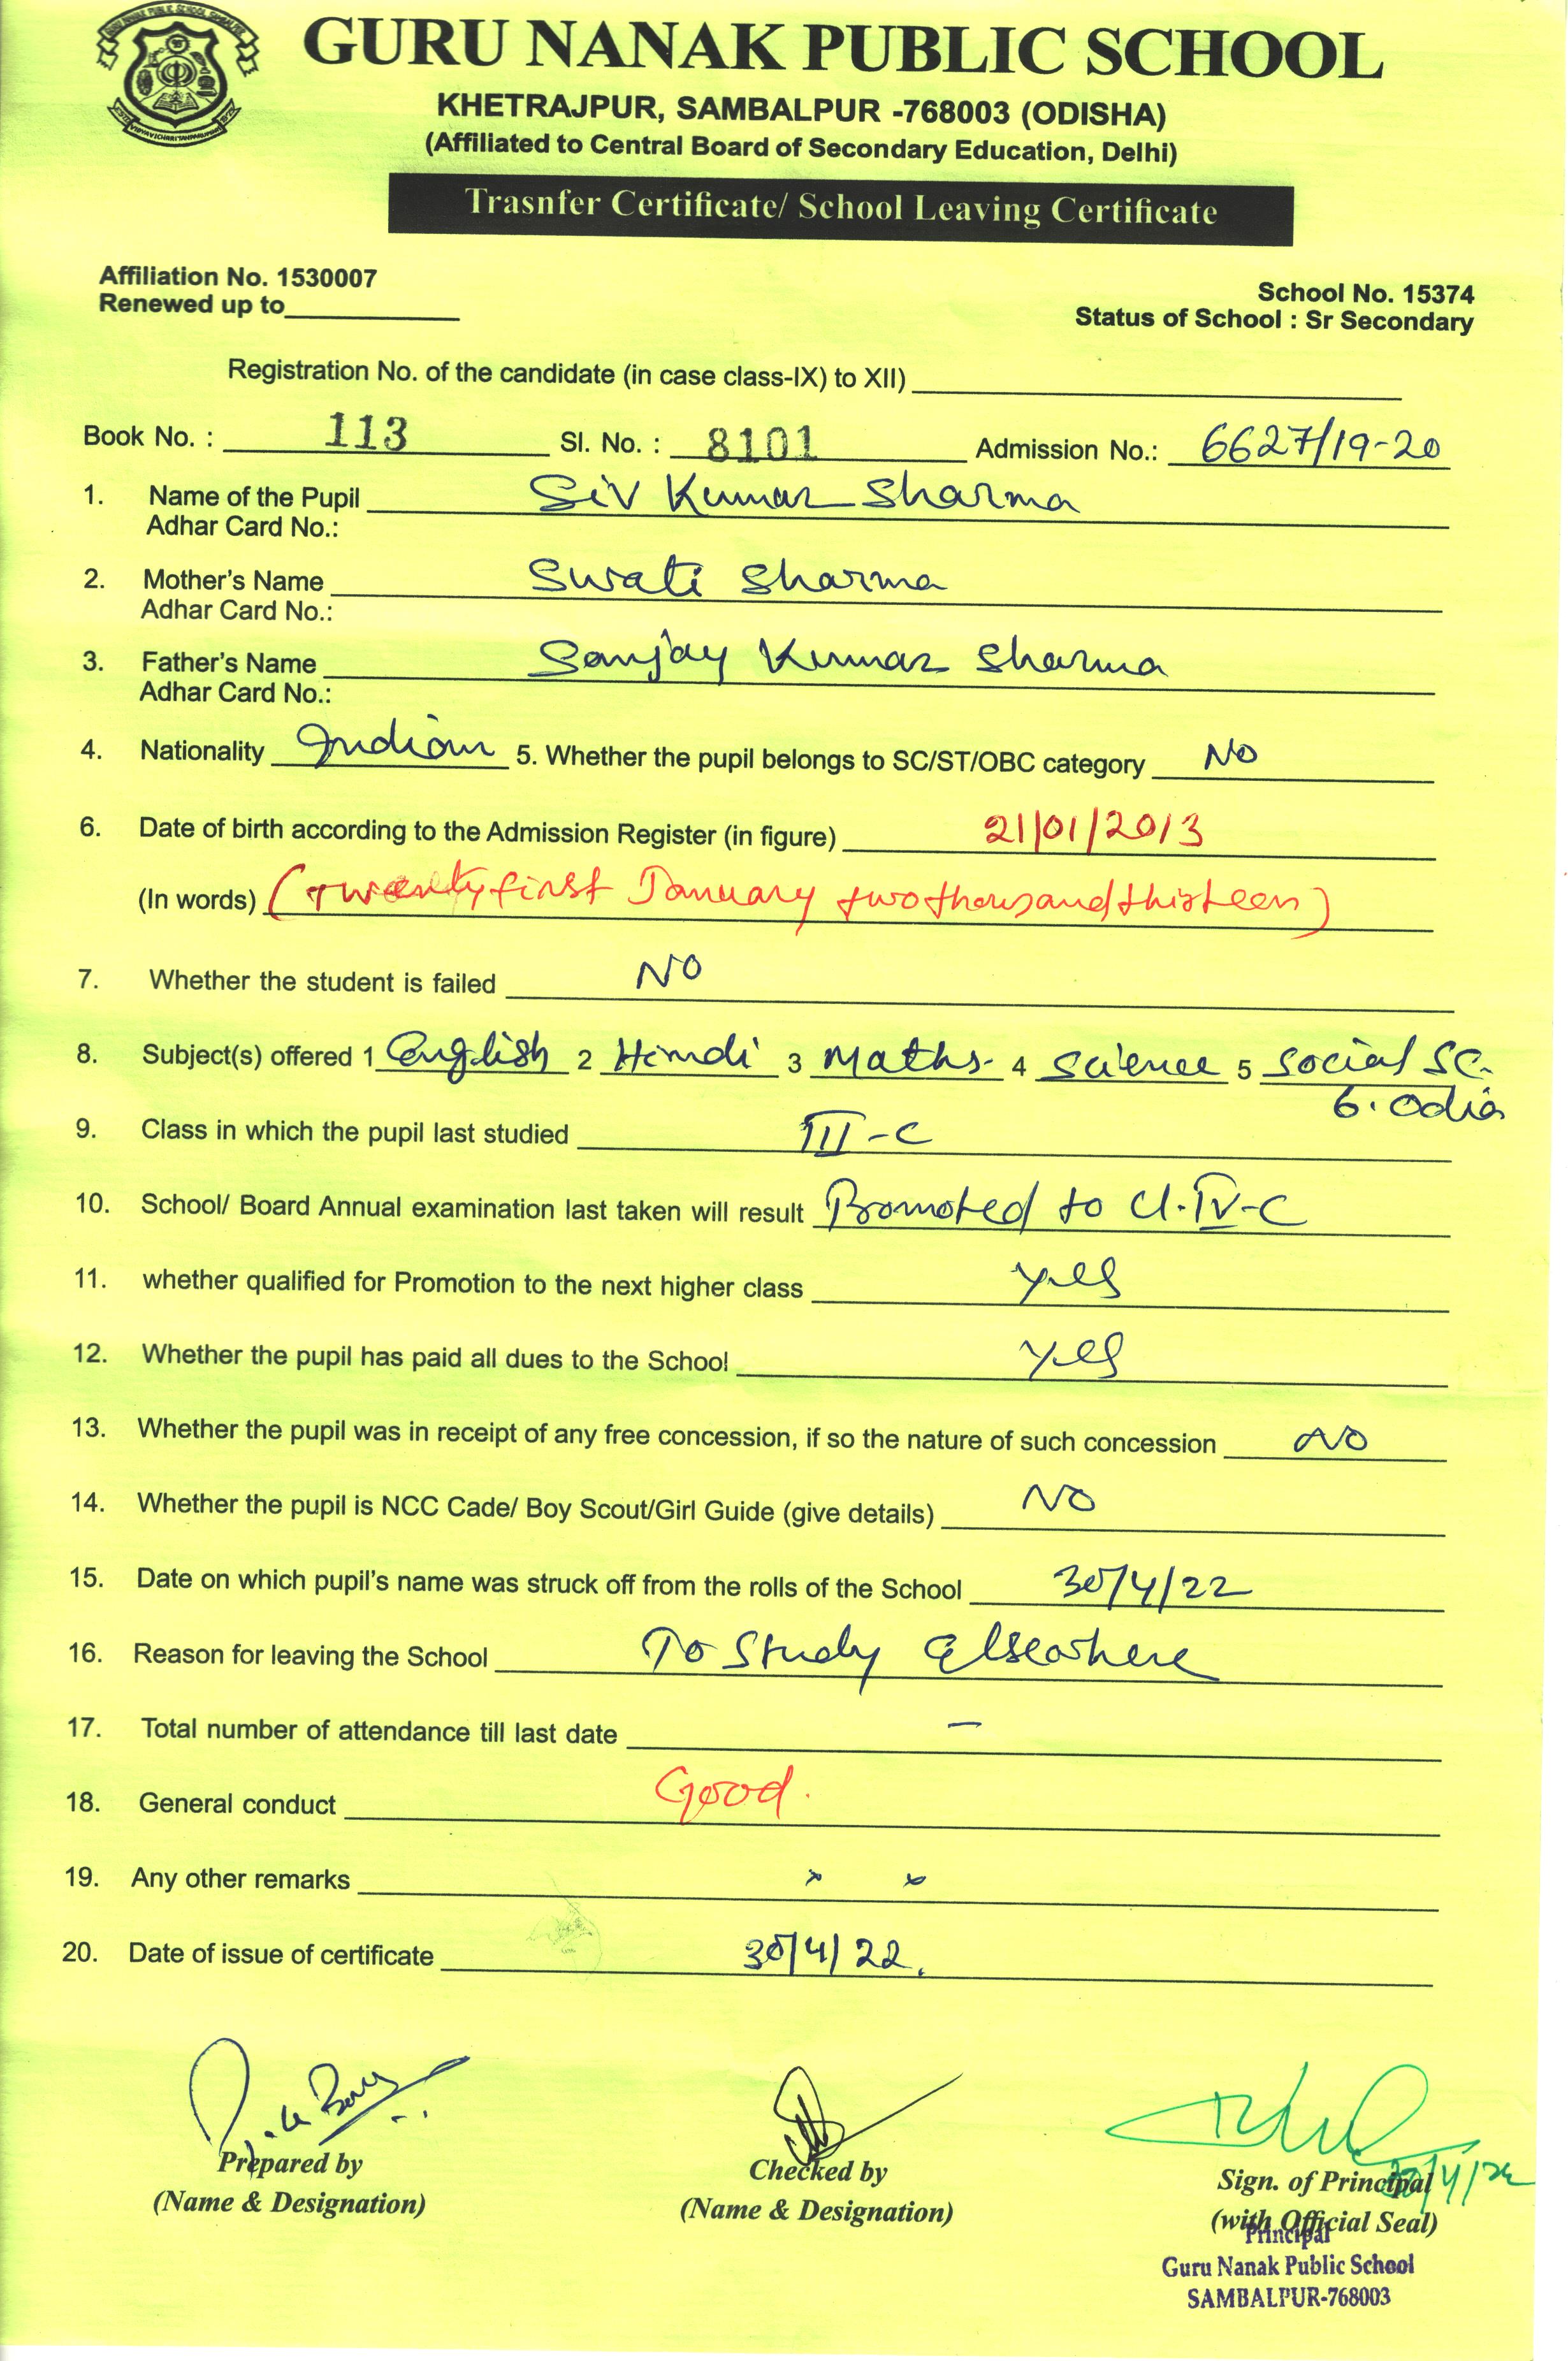 GURU NANAK PUBLIC SCHOOL
KHETRAJPUR, SAMBALPUR -768003 (ODISHA)
(Affiliated to Central Board of Secondary Education, Delhi)
Trasnfer Certificate/ School Leaving Certificate
Affiliation No. 1530007
Renewed up to
School No. 15374
Status of School : Sr Secondary
Registration No. of the candidate (in case class-IX) to XII)
Book No. : 113 Sl. No. : 8101 Admission No.: 6627/19-20
1. Name of the Pupil Siv Kumar Sharma
Adhar Card No.:
2. Mother's Name Swati Sharma
Adhar Card No.:
3. Father's Name Sanjay Kumar Sharma
Adhar Card No.:
4. Nationality Indian 5. Whether the pupil belongs to SC/ST/OBC category NO
6. Date of birth according to the Admission Register (in figure) 21/01/2013
(In words) (Twenty first January two thousand thirteen)
7. Whether the student is failed NO
8. Subject(s) offered 1 English 2 Hindi 3 Maths. 4 Science 5 Social Sc.
6. Odia
9. Class in which the pupil last studied III-C
10. School/ Board Annual examination last taken will result Promoted to Cl.IV-C
11. whether qualified for Promotion to the next higher class yes
12. Whether the pupil has paid all dues to the School yes
13. Whether the pupil was in receipt of any free concession, if so the nature of such concession NO
14. Whether the pupil is NCC Cade/ Boy Scout/Girl Guide (give details) NO
15. Date on which pupil's name was struck off from the rolls of the School 30/4/22
16. Reason for leaving the School To Study Elsewhere
17. Total number of attendance till last date –
18. General conduct Good.
19. Any other remarks × ×
20. Date of issue of certificate 30/4/22.
Prepared by
(Name & Designation)
Checked by
(Name & Designation)
30/4/22
Sign. of Principal
(with Official Seal)
Principal
Guru Nanak Public School
SAMBALPUR-768003